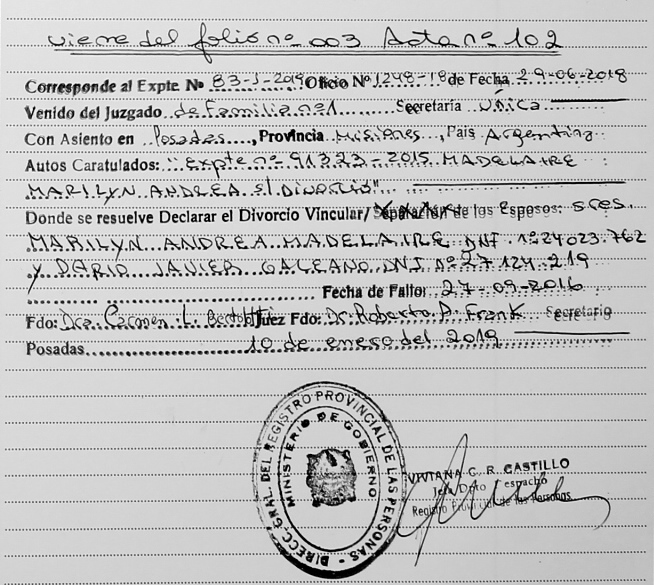 viene del folio nº 003 Acta nº 102
Corresponde al Expte. Nº 83-J-2019 Oficio Nº 1248-18 de Fecha 29-06-2018
Venido del Juzgado de Familia nº1 Secretaría Única
Con Asiento en Posadas, Provincia Misiones, País Argentina
Autos Caratulados: "Expte nº 91323-2015 MADELAIRE
MARILYN ANDREA s/ Divorcio"
Donde se resuelve Declarar el Divorcio Vincular/ Separación de los Esposos: sres.
MARILYN ANDREA MADELAIRE DNI nº 24023.762
Y DARIO JAVIER GALEANO DNI nº 27 124 219
Fecha de Fallo: 27-09-2016
Fdo: Dra. Carmen L. Juez Fdo: Dr. Roberto P. Frank Secretario
Posadas 10 de enero del 2019
DIRECC. GRAL. DEL REGISTRO PROVINCIAL DE LAS PERSONAS
MINISTERIO DE GOBIERNO
VIVIANA C. R. CASTILLO
Jefa Dpto Despacho
Registro Provincial de las Personas